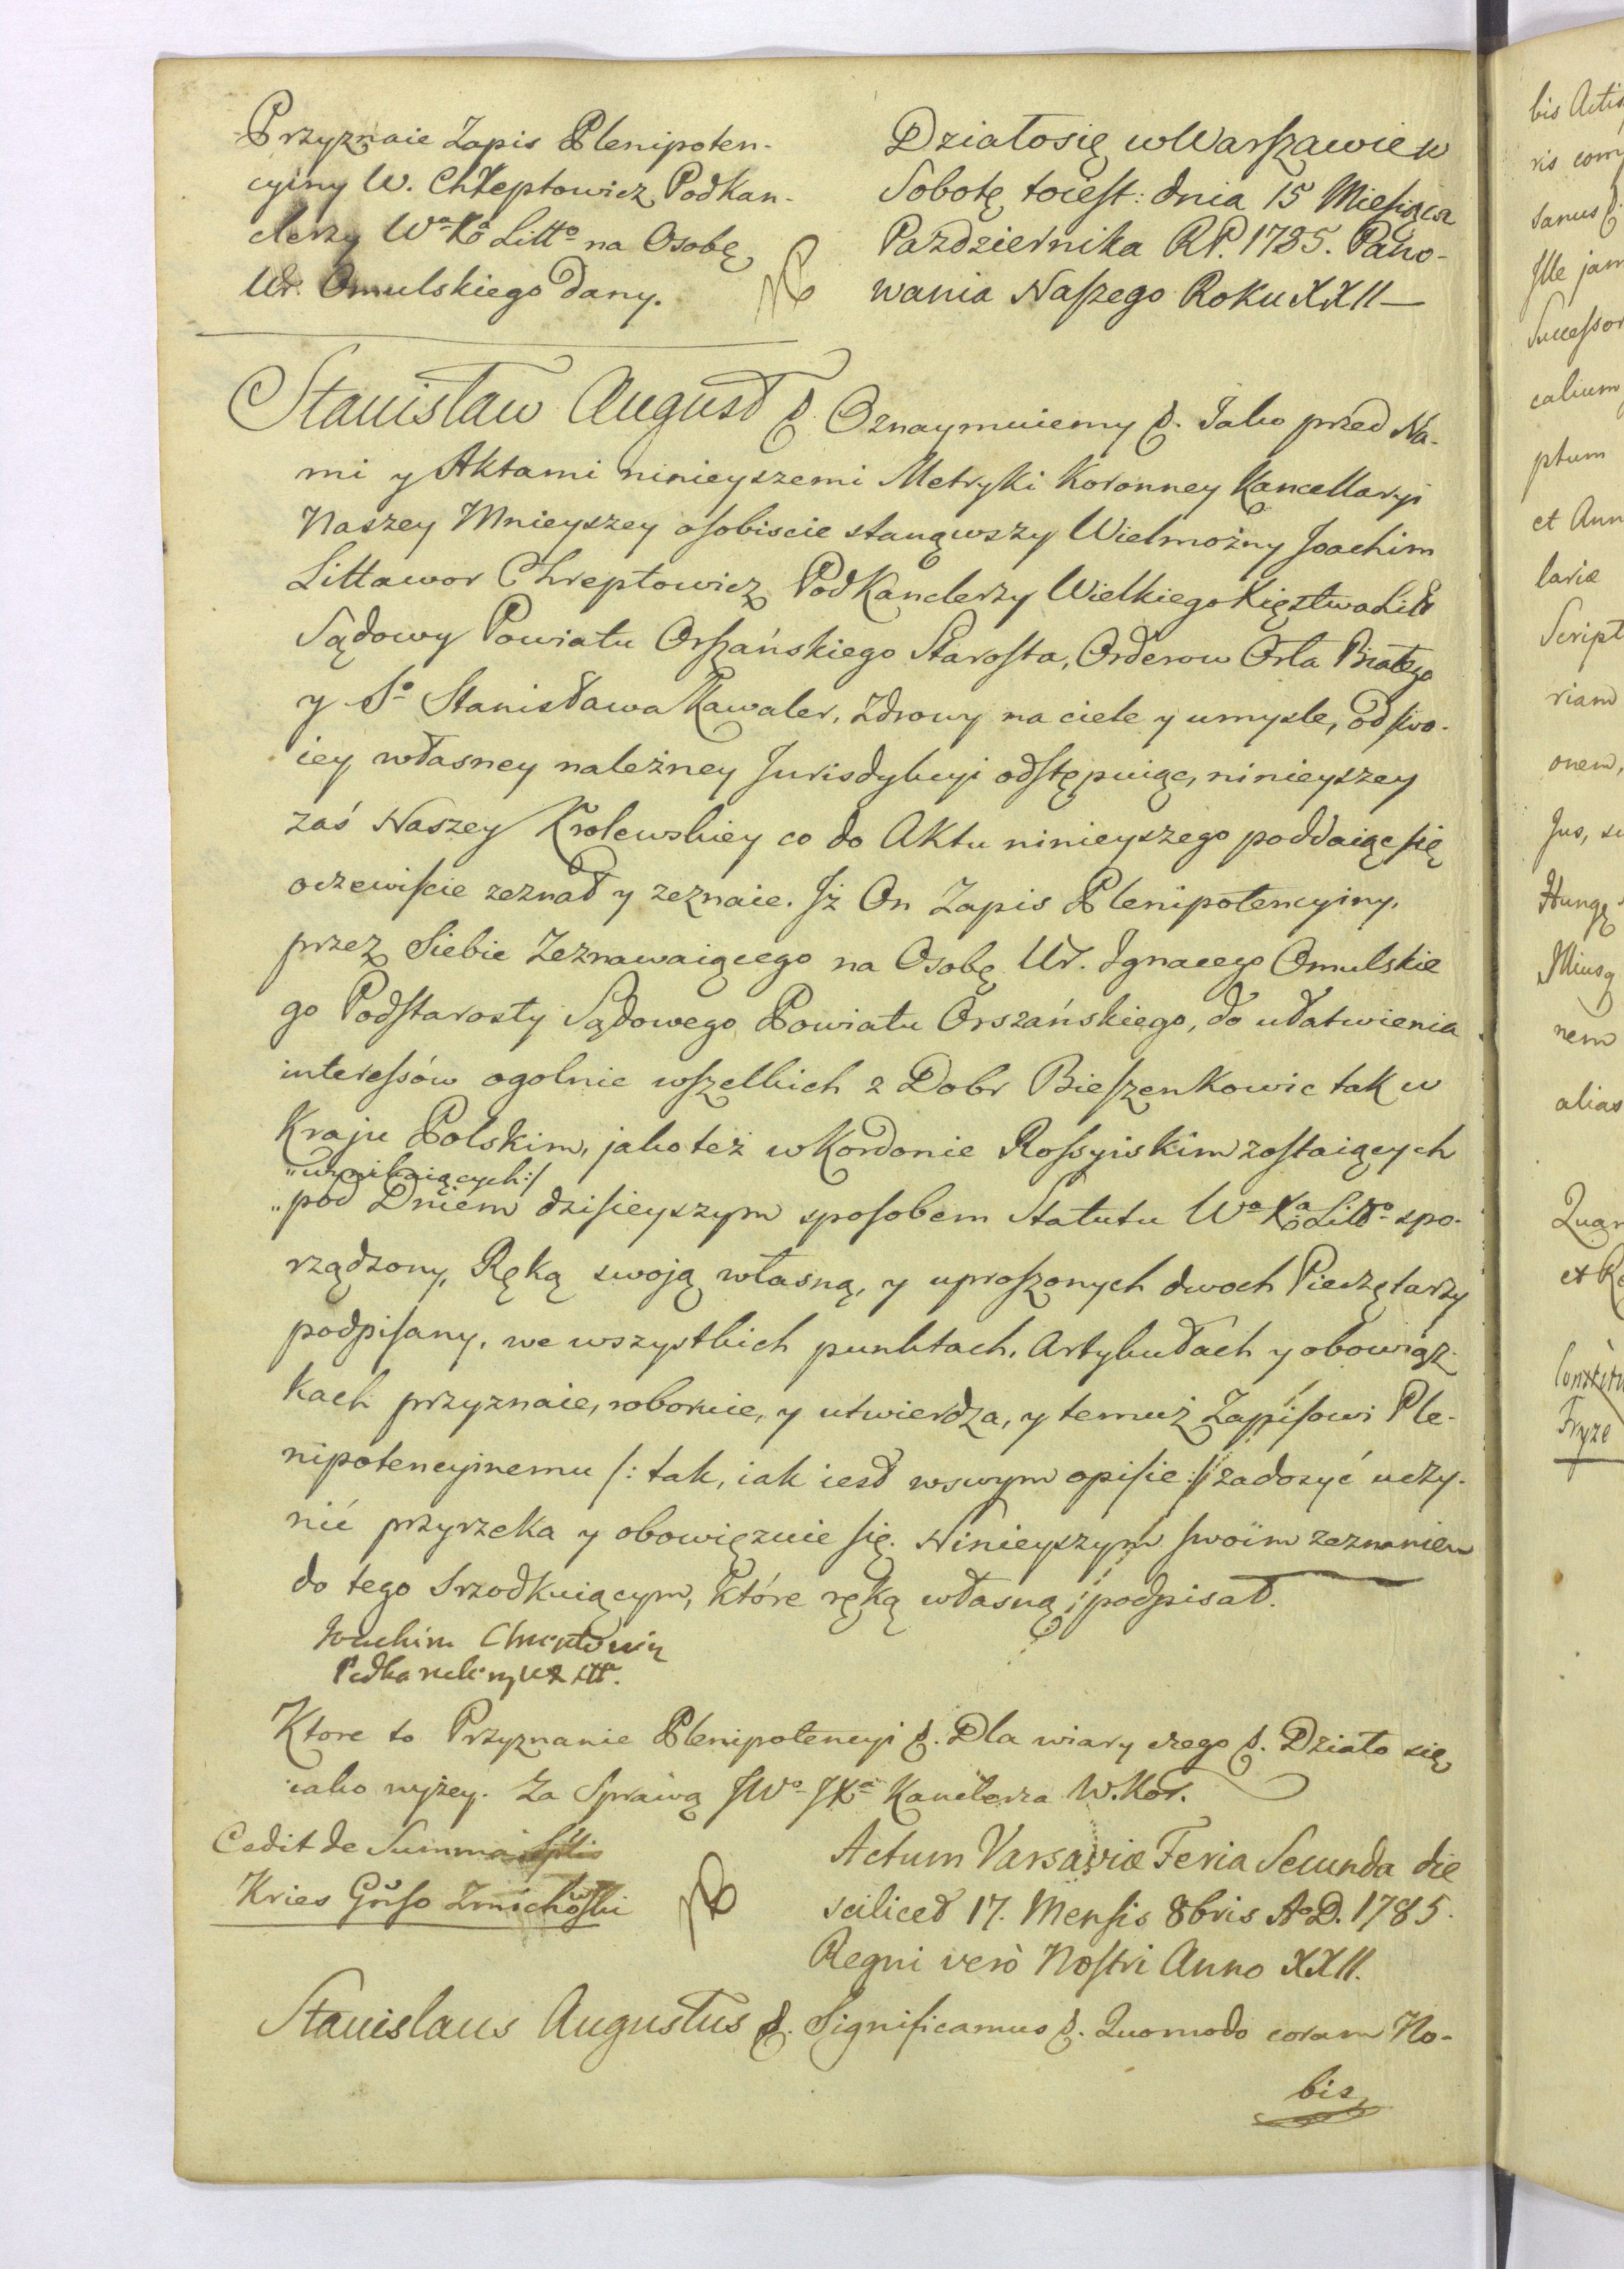 Przyznaie Zapis Plenipoten-
cyiny W. Chreptowicz Podkan-
clerzy Wo Ko Litto na Osobę
Ur. Omulskiego dany.
Działosię w Warszawie w
Sobotę toiest: dnia 15 Miesiąca
Pazdziernika RP. 1785. Pano-
wania Naszego Roku XXII—
Stanisław August &. Oznaymuiemy &. Jako przed Na-
mi y Aktami ninieyszemi Metryki Koronney Kancellaryi
Naszey Mnieyszey osobiscie stanąwszy Wielmożny Joachim
Littawor Chreptowicz PodKanclerzy Wielkiego Xięztwa Litt
Sądowy Powiatu Orszańskiego Starosta, Orderow Orła Białego
y So Stanisława Kawaler, zdrowy na ciele y umysle, od swo-
iey własney należney Jurisdykcyi odstępuiąc, ninieyszey
zaś Naszey Krolewskiey co do Aktu ninieyszego poddaiąc się
oczewiscie zeznał y zeznaie. Jż On Zapis Plenipotencyiny,
przez Siebie Zeznawaiącego na Osobę Ur. Ignacego Omulskie
go Podstarosty Sądowego Powiatu Orszańskiego, do ułatwienia
interessów ogolnie wszelkich z Dobr Bieszenkowic tak w
Kraju Polskim, jako też w Kordonie Rossyiskim zostaiących
"wynikaiących:/
"pod Dniem dzisieyszym sposobem Statutu Wo Xa Litto spo-
rządzony, Ręką swoją własną, y uproszonych dwoch Pieczętarzy
podpisany, we wszystkich punktach, Artykułach y obowiąz-
kach przyznaie, roboruie, y utwierdza, y temuż Zapisowi Ple-
nipotencyinemu /: tak, iak iest w swym opisie :/ zadosyć uczy-
nić przyrzeka y obowięzuie się. Ninieyszym swoim zeznaniem
do tego Srzodkuiącym, które ręką własną podpisał.
Joachim Chreptowicz
Podkanclerzy WX Litt.
Ktore to Przyznanie Plenipotencyi &. Dla wiary czego &. Działo się
iako wyżey. Za Sprawą JWo JXa Kanclerza W. Kor.
Cedit de Summa
Kries Grosso Zmichowski
Actum Varsaviæ Feria Secunda die
scilicet 17. Mensis 8bris Ao D. 1785.
Regni verò Nostri Anno XXII.
Stanislaus Augustus &. Significamus &. Quomodo coram No-
bis
bis Actis
ris com
sanus &.
Ille jam
Successor
calium
ptum
et Ann
lariæ
Script
riam
onem,
Jus, su
nem
alias
Quar